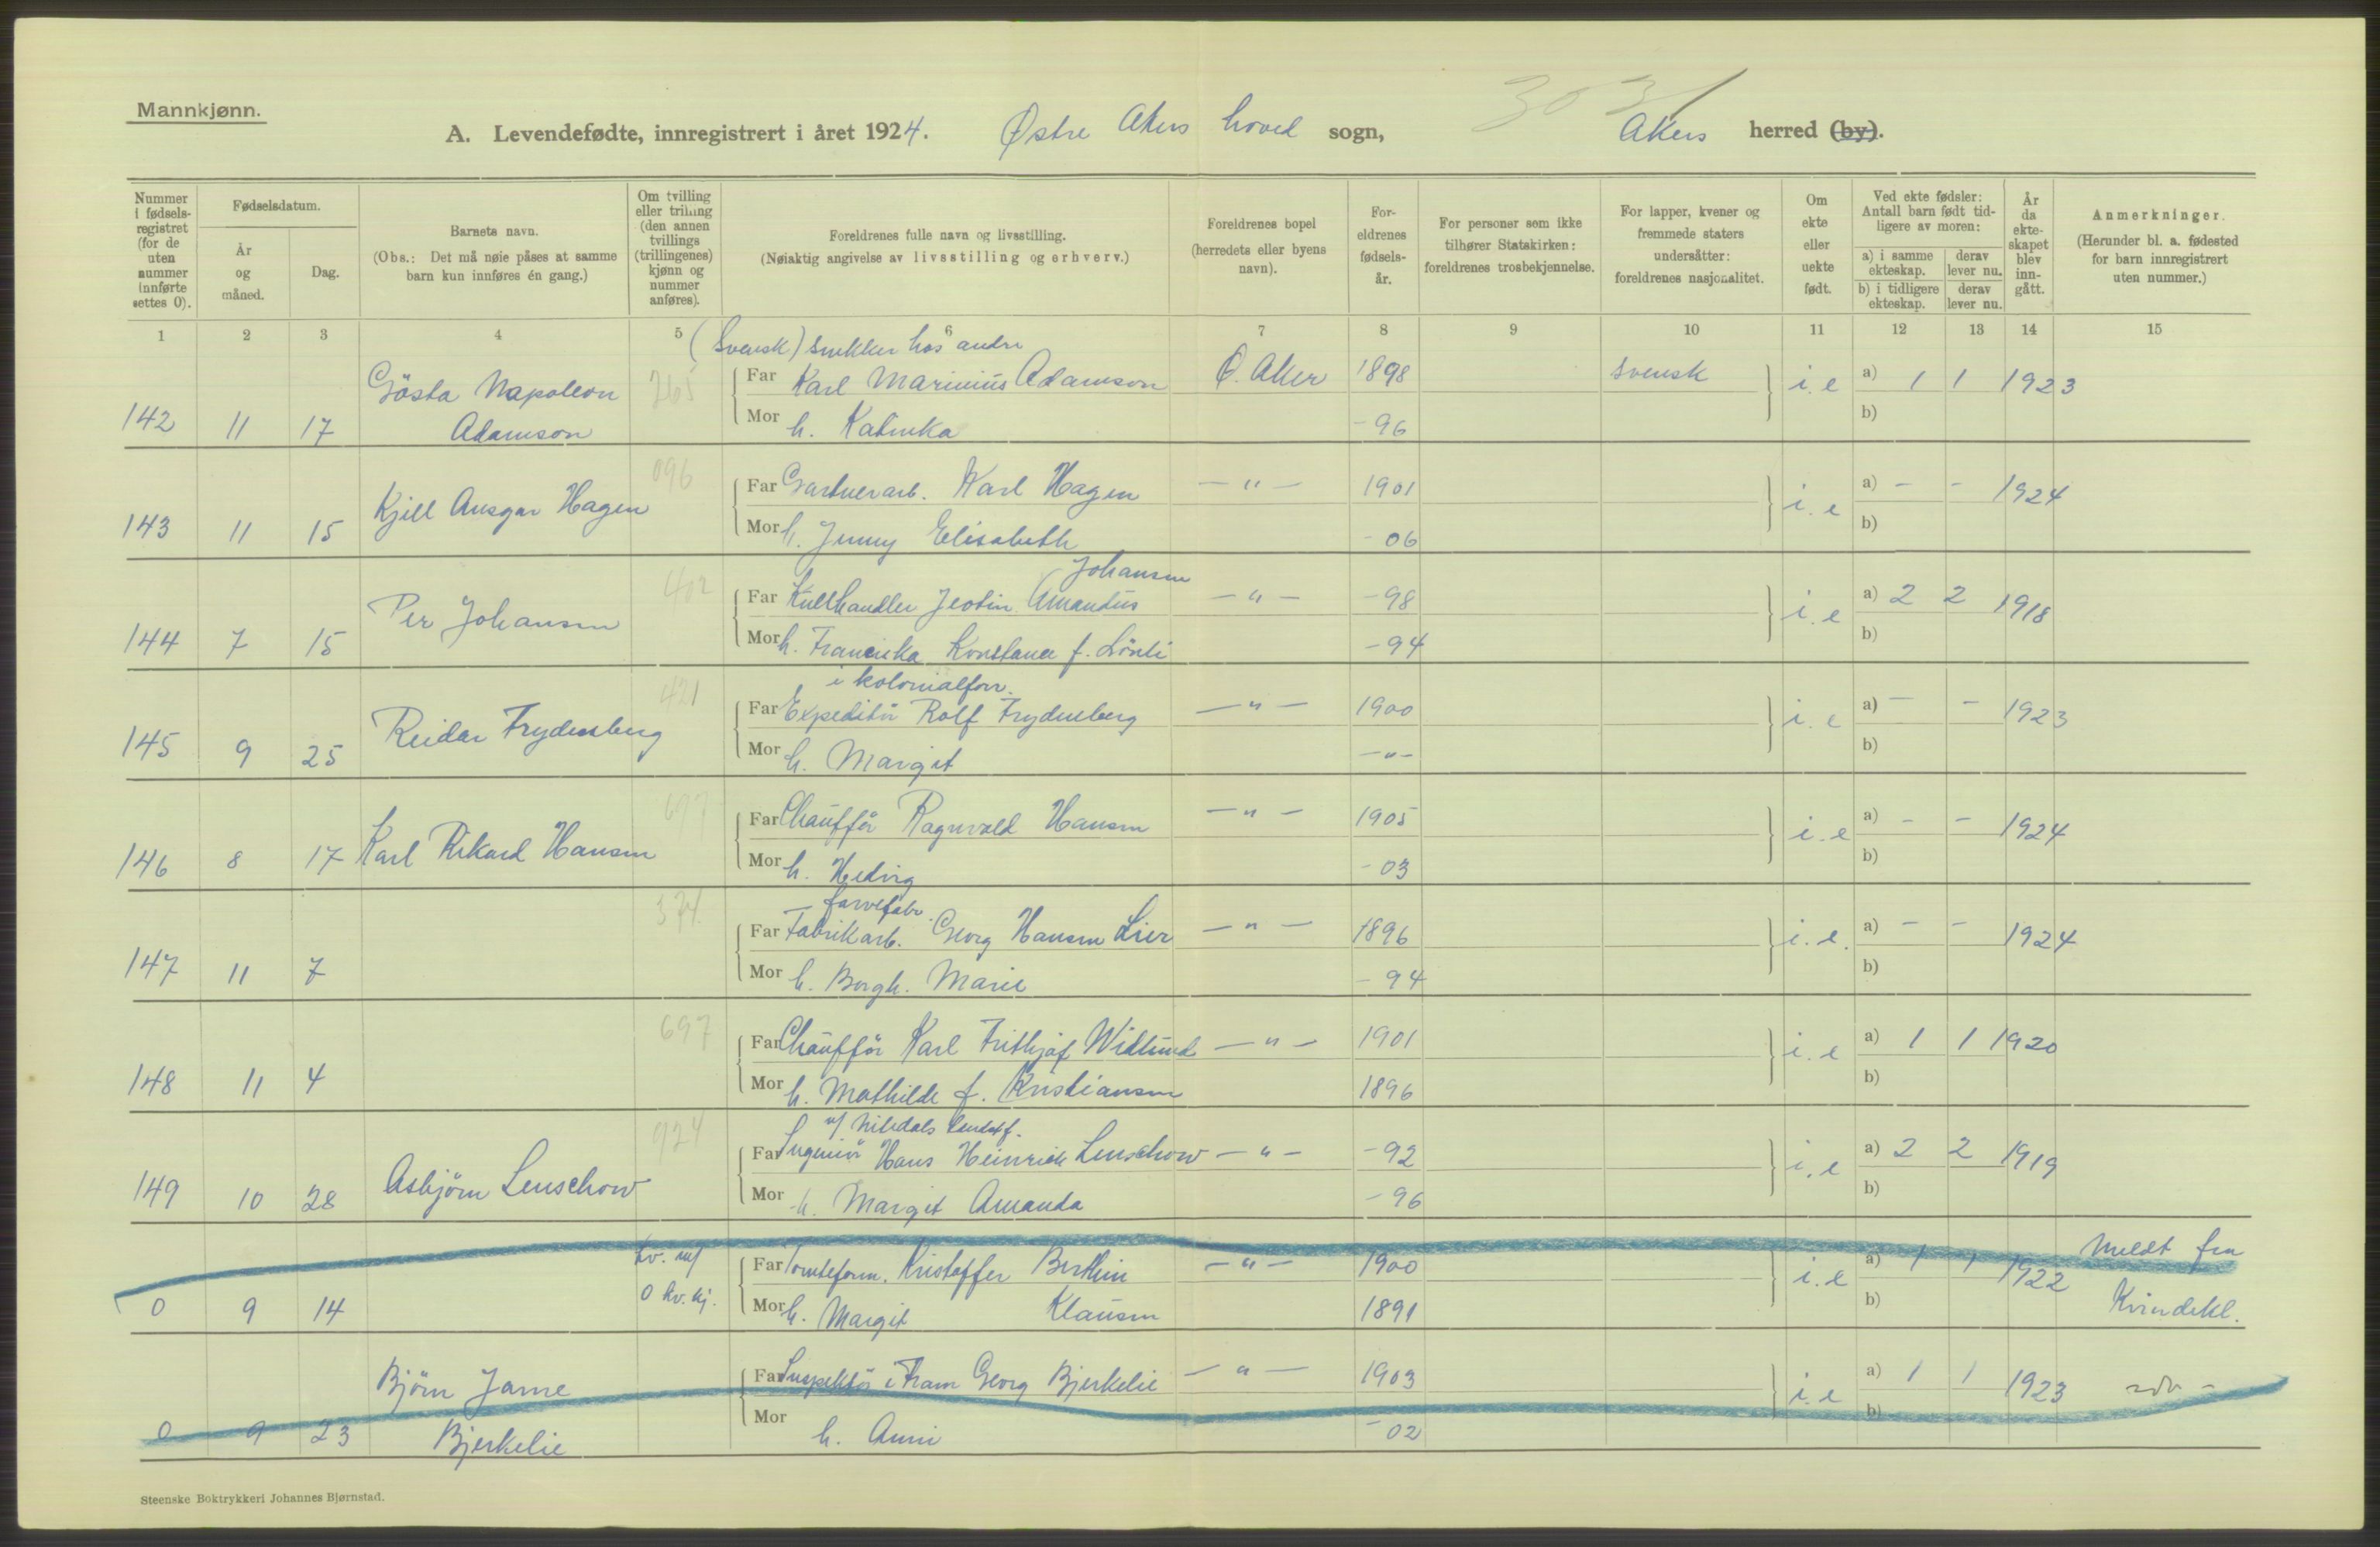 Mannkjønn.
3031
A. Levendefødte, innregistrert i året 1924. Østre Akers hoved sogn, Akers herred (by).
Nummer i fødsels- registret (for de uten nummer innførte settes 0).
Fødselsdatum.
År og måned.
Dag.
Barnets navn.
(Obs.: Det må nøie påses at samme barn kun innføres én gang.)
Om tvilling eller trilling (den annen tvillings (trillingenes) kjønn og nummer anføres).
Foreldrenes fulle navn og livsstilling.
(Nøiaktig angivelse av livsstilling og erhverv.)
Foreldrenes bopel (herredets eller byens navn).
For- eldrenes fødsels- år.
For personer som ikke tilhører Statskirken: foreldrenes trosbekjennelse.
For lapper, kvener og fremmede staters undersåtter: foreldrenes nasjonalitet.
Om ekte eller uekte født.
Ved ekte fødsler: Antall barn født tid- ligere av moren:
a) i samme ekteskap. derav lever nu.
b) i tidligere ekteskap. derav lever nu.
År da ekte- skapet blev inn- gått.
Anmerkninger.
(Herunder bl. a. fødested for barn innregistrert uten nummer.)
1 2 3 4 5 6 7 8 9 10 11 12 13 14 15
(Svensk) snekker hos andre
Gösta Napoleon 265 Far Karl Marinius Adamson Ø. Aker 1898 svensk i. e a) 1 1 1923
142 11 17 Adamson Mor h. Katinka - 96 b)
096 Far Gartnerarb. Karl Hagen — " — 1901 i. e a) - - 1924
143 11 15 Kjell Ansgar Hagen Mor h. Jenny Elisabeth - 06 b)
Johansen
402 Far Kullhandler Amandus — " — - 98 i. e a) 2 2 1918
144 7 15 Per Johansen Mor h. Konstance f. - 94 b)
i kolonialforr.
421 Far Expeditör Rolf Frydenberg — " — 1900 i. e a) - - 1923
145 9 25 Reidar Frydenberg Mor h. Margit — " — b)
697 Far Chaufför Ragnvald Hansen — " — 1905 i. e a) - - 1924
146 8 17 Karl Rikard Hansen Mor h. Hedvig - 03 b)
farvefabr.
374 Far Fabrikarb. Georg Hansen Lier — " — 1896 i. e. a) - - 1924
147 11 7 Mor h. Borgh. Marie - 94 b)
697 Far Chaufför Karl Frithjof Widlund — " — 1901 i. e a) 1 1 1920
148 11 4 Mor h. Mathilde f. Kristiansen 1896 b)
v/ Nitedals
924 Far Ingeniör Hans Heinrich Lenschow — " — - 92 i. e a) 2 2 1919
149 10 28 Asbjörn Lenschow Mor h. Margit Amanda - 96 b)
tv. m/ Far Tomteform. Kristoffer Berthin — " — 1900 i. e a) 1 1 1922 Meldt fra
0 9 14 0 kv. kj. Mor h. Margit Klausen 1891 b) Kvindekl.
Björn Jarne Far Inspektör i Fram Georg Bjerkelie — " — 1903 i. e a) 1 1 1923 — do —
0 9 23 Bjerkelie Mor h. Anni - 02 b)
Steenske Boktrykkeri Johannes Bjørnstad.